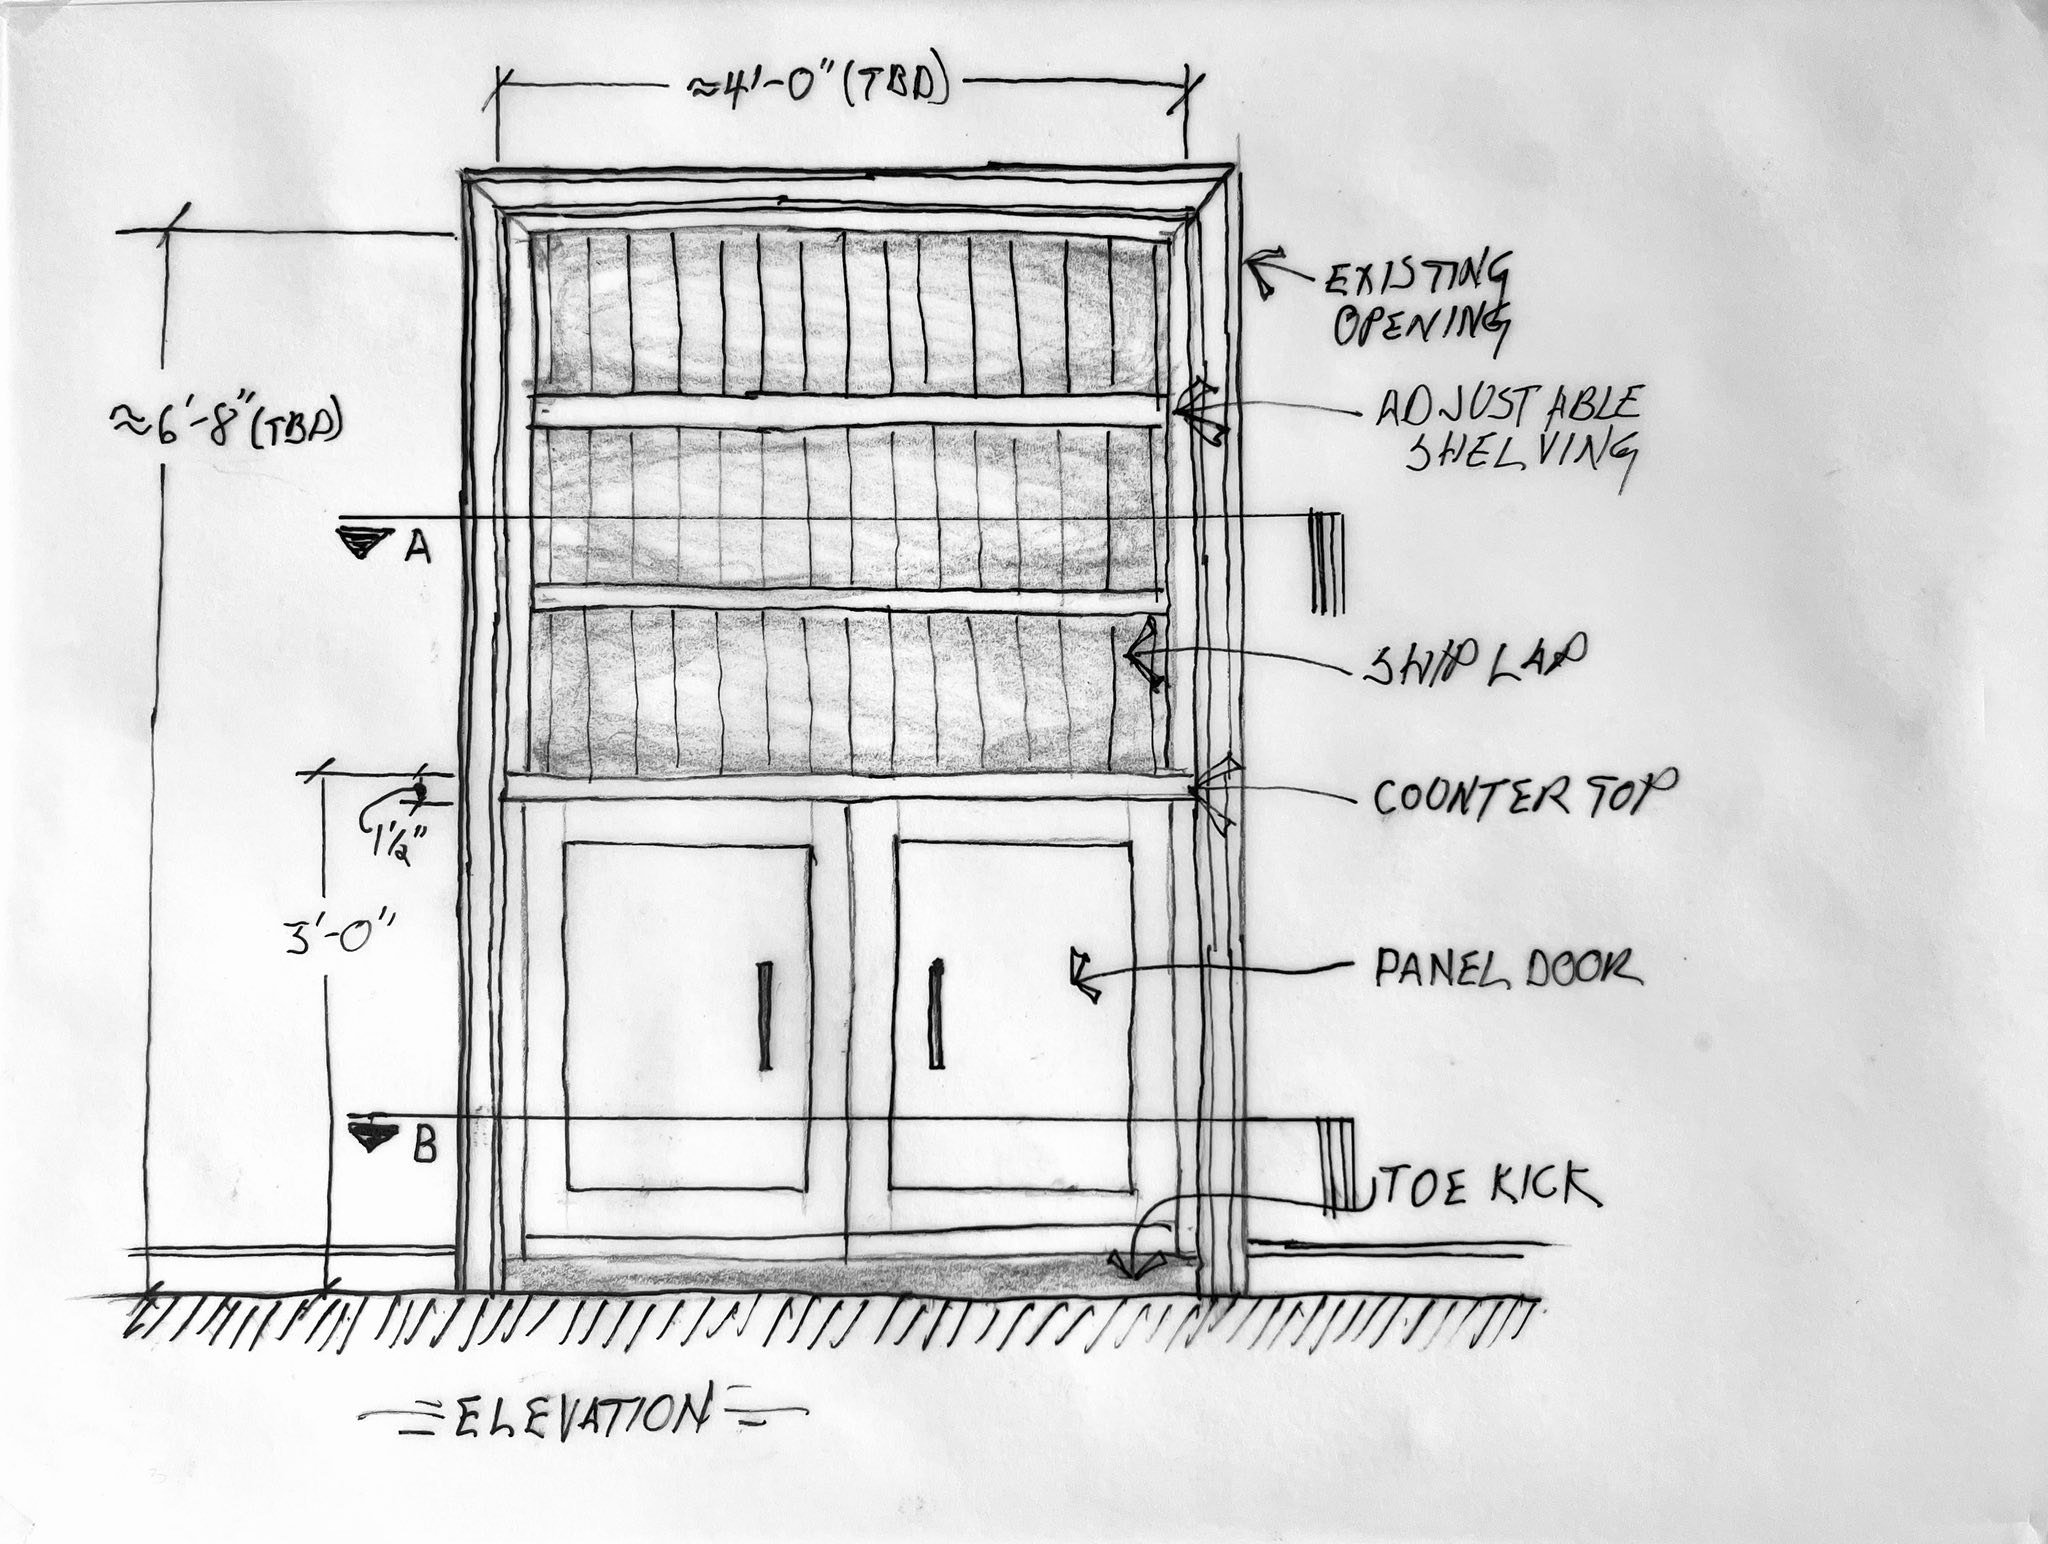 ≈4'-0" (TBD)
EXISTING
OPENING
ADJUSTABLE
SHELVING
≈6'-8" (TBD)
A
SHIP LAP
COUNTER TOP
1½"
3'-0"
PANEL DOOR
B
TOE KICK
ELEVATION